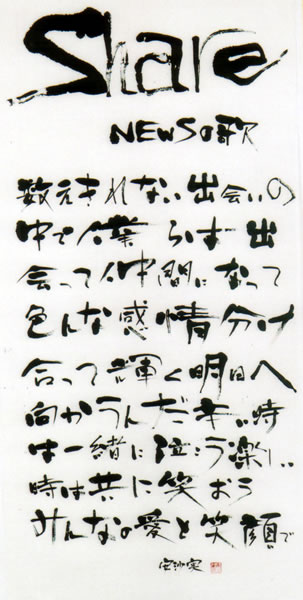 Share
NEWSの歌
数えきれない出会いの
中で僕らは出
会って仲間になって
色んな感情分け
合って輝く明日へ
向かうんだ辛い時
は一緒に泣こう楽しい
時は共に笑おう
みんなの愛と笑顔で